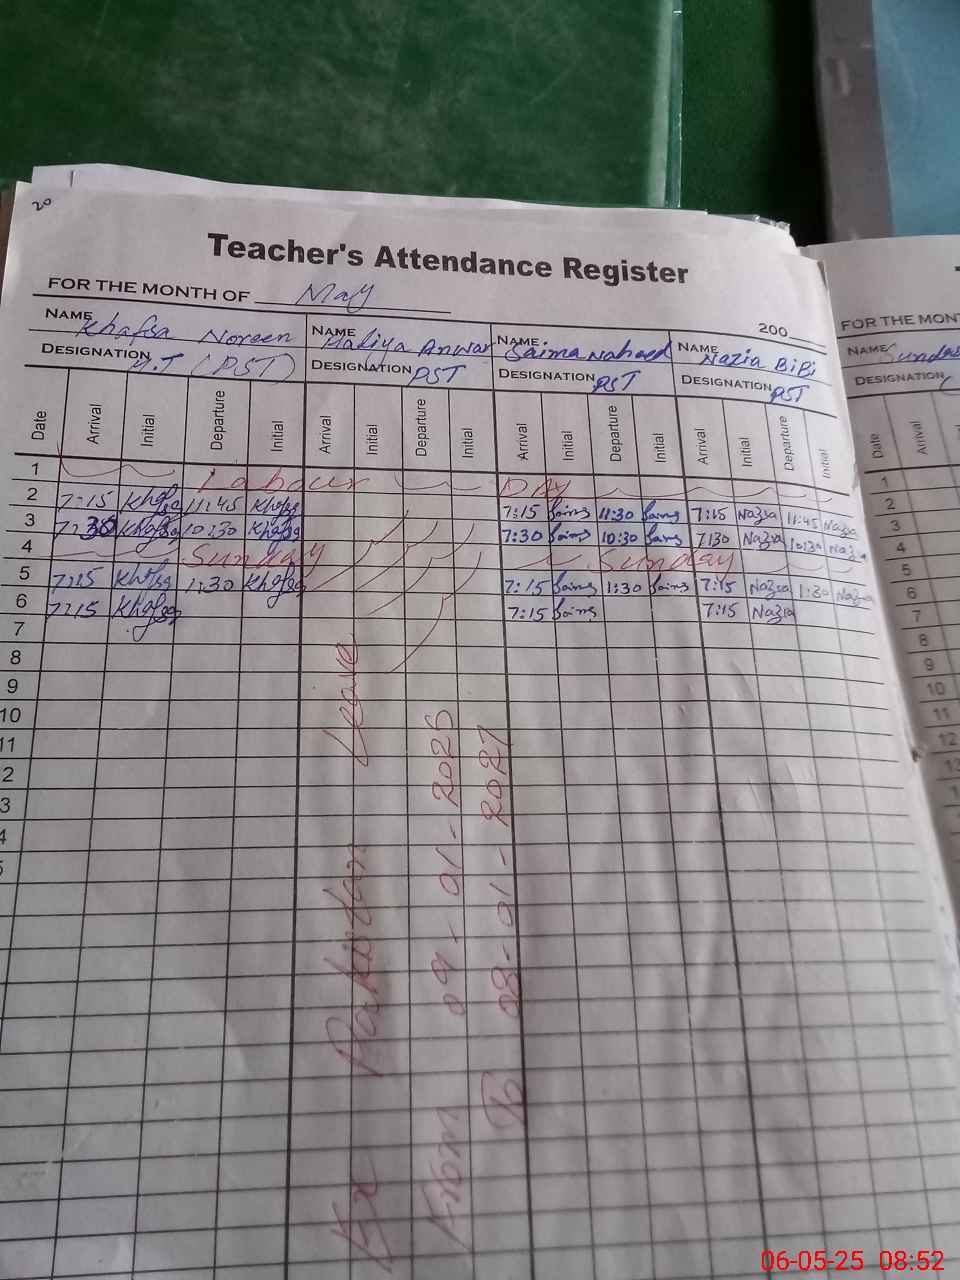 20
Teacher's Attendance Register
FOR THE MONTH OF May
200
NAME Khafsa Noreen NAME Haliya Anwar NAME Saima Naheed NAME Nazia BiBi
DESIGNATION H.T (PST) DESIGNATION PST DESIGNATION PST DESIGNATION PST
Date Arrival Initial Departure Initial Arrival Initial Departure Initial Arrival Initial Departure Initial Arrival Initial Departure Initial
1 Labour DAY
2 7:15 Khafsa 11:45 Khafsa 7:15 Saima 11:30 Saima 7:15 Nazia 11:45 Nazia
3 7:30 Khafsa 10:30 Khafsa 7:30 Saima 10:30 Saima 7:30 Nazia 10:30 Nazia
4 Sunday Sunday
5 7:15 Khafsa 1:30 Khafsa 7:15 Saima 1:30 Saima 7:15 Nazia 1:30 Nazia
6 7:15 Khafsa 7:15 Saima 7:15 Nazia
7
8
9
10
11
2
3
4
5
Ex Pakistan Leave
From 09-01-2025
To 08-01-2027
FOR THE MON
NAME Sundas
DESIGNATION
Date Arrival
1
2
3
4
5
6
7
8
9
10
11
12
13
06-05-25 08:52